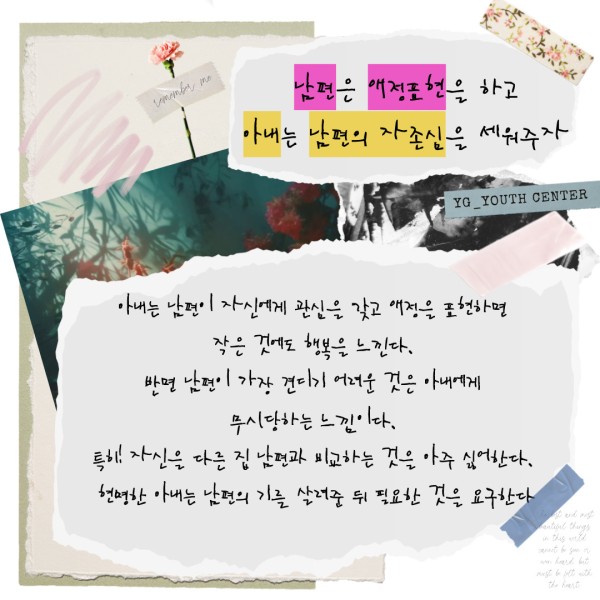 remember me
남편은 애정표현을 하고
아내는 남편의 자존심을 세워주자
YG_YOUTH CENTER
아내는 남편이 자신에게 관심을 갖고 애정을 표현하면
작은 것에도 행복을 느낀다.
반면 남편이 가장 견디기 어려운 것은 아내에게
무시당하는 느낌이다.
특히! 자신을 다른 집 남편과 비교하는 것을 아주 싫어한다.
현명한 아내는 남편의 기를 살려준 뒤 필요한 것을 요구한다
best and most
beautiful things
in this world
cannot be seen or
even heard but
must be felt with
the heart.